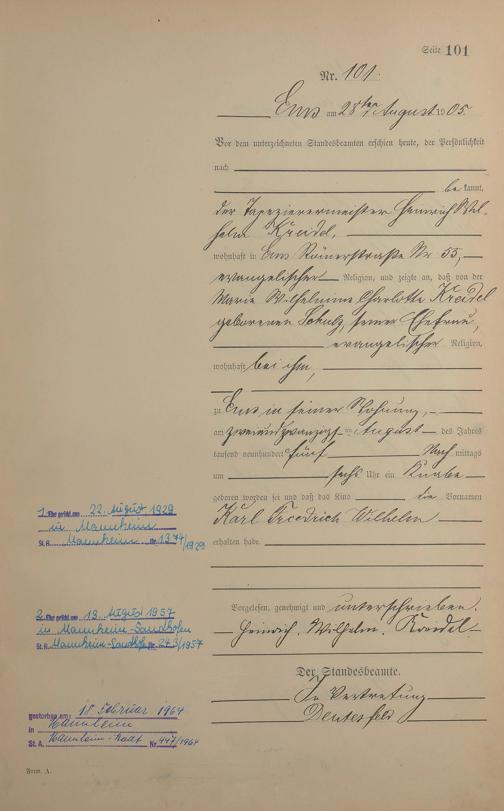 Seite 101
Nr. 101.
Ems am 28ten August 1905.
Vor dem unterzeichneten Standesbeamten erschien heute, der Persönlichkeit
nach
bekannt,
der Tapezierermeister Heinrich Wil-
helm Kreidel,
wohnhaft in Ems Römerstraße Nr 55,
evangelischer Religion, und zeigte an, daß von der
Marie Wilhelmine Charlotte Kreidel
geborenen Schulz, seiner Ehefrau,
evangelischer Religion,
wohnhaft bei ihm,
zu Ems in seiner Wohnung,
am zweiundzwanzigsten August des Jahres
tausend neunhundert fünf Nachmittags
um sechs Uhr ein Knabe
geboren worden sei und daß das Kind die Vornamen
Karl Friedrich Wilhelm
erhalten habe.
1. Ehe geschl. am 22. August 1929
in Mannheim
St. A. Mannheim Nr. 1374/1929
Vorgelesen, genehmigt und unterschrieben.
Heinrich. Wilhelm. Kreidel
2. Ehe geschl. am 13. August 1957
in Mannheim-Sandhofen
St. A. Mannheim-Sandhofen Nr. 243/1957
Der Standesbeamte.
In Vertretung
gestorben am: 18 Februar 1964
in Mannheim
St. A. Mannheim-Stadt Nr. 447/1964
Form. A.